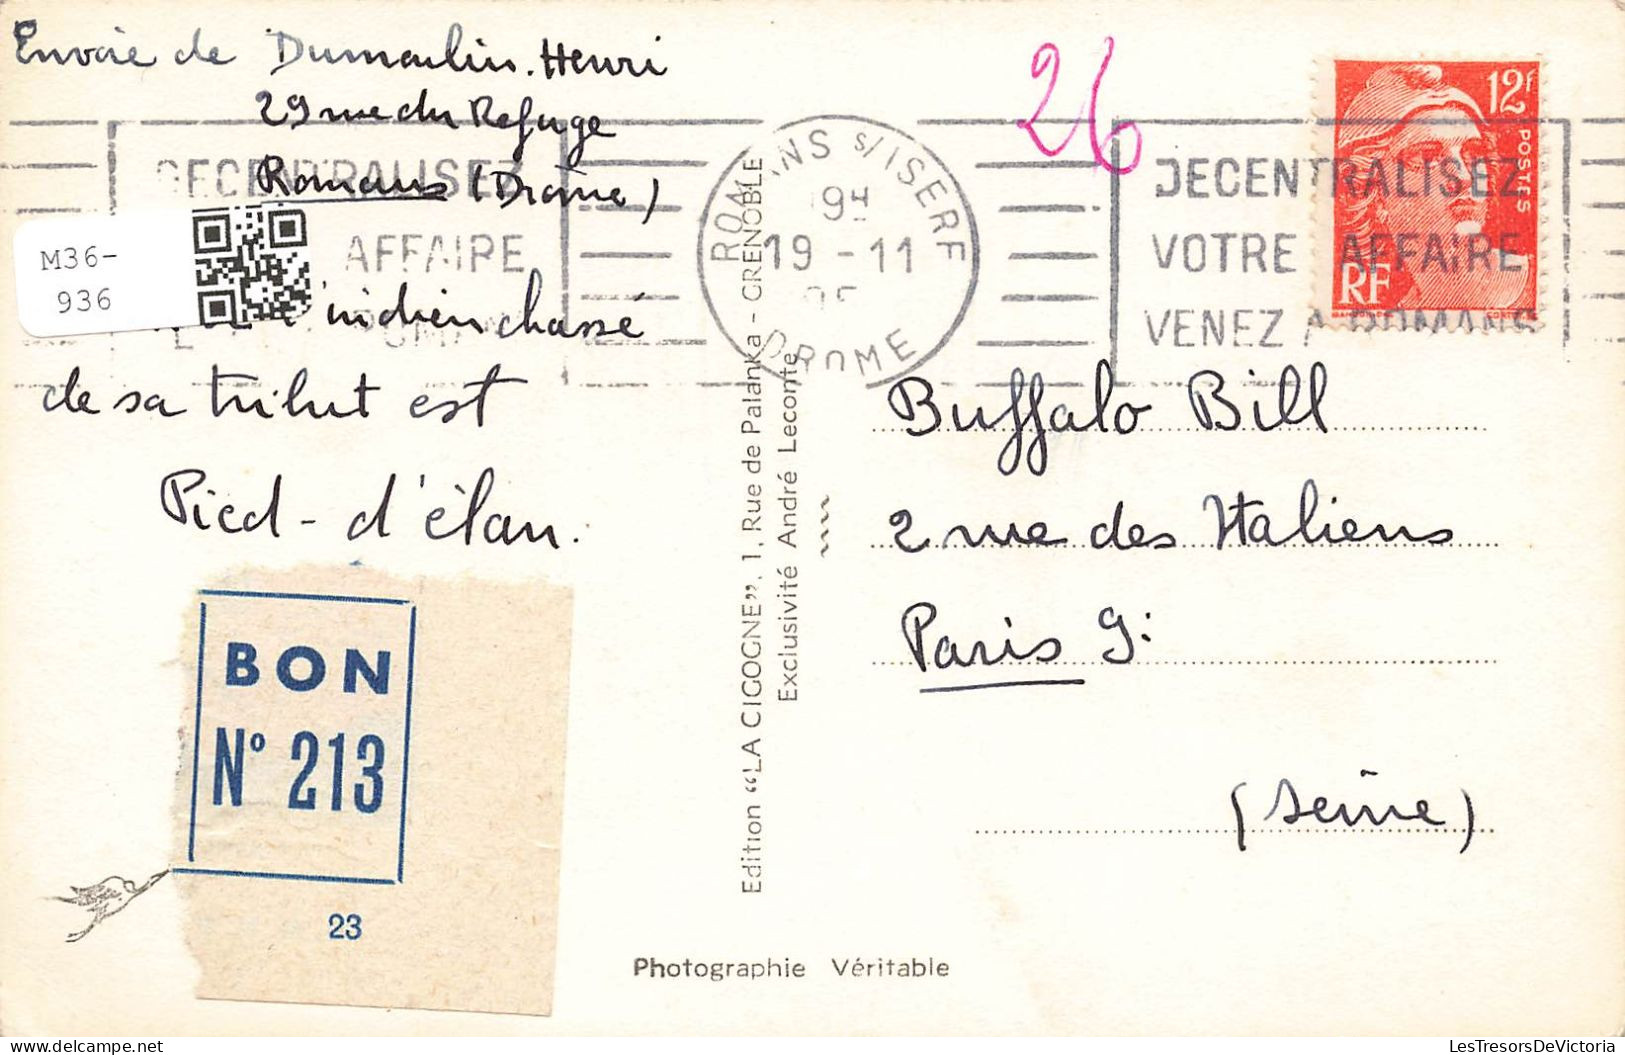 Envoie de Dumoulin. Henri
29 rue du Refuge
Romans (Drôme)
M36-
936
l'indien chassé
de sa tribut est
Pied - d'élan.
BON
N° 213
23
Edition “LA CIGOGNE”, 1, Rue de Palanka - GRENOBLE
Exclusivité André Leconte
Photographie Véritable
26
ROMANS S/ ISERE
19 - 11
DROME
DECENTRALISEZ
AFFAIRE
DECENTRALISEZ
VOTRE AFFAIRE
VENEZ A ROMANS
12F
POSTES
RF
Buffalo Bill
2 rue des Italiens
Paris 9:
(Seine)
LesTresorsDeVictoria